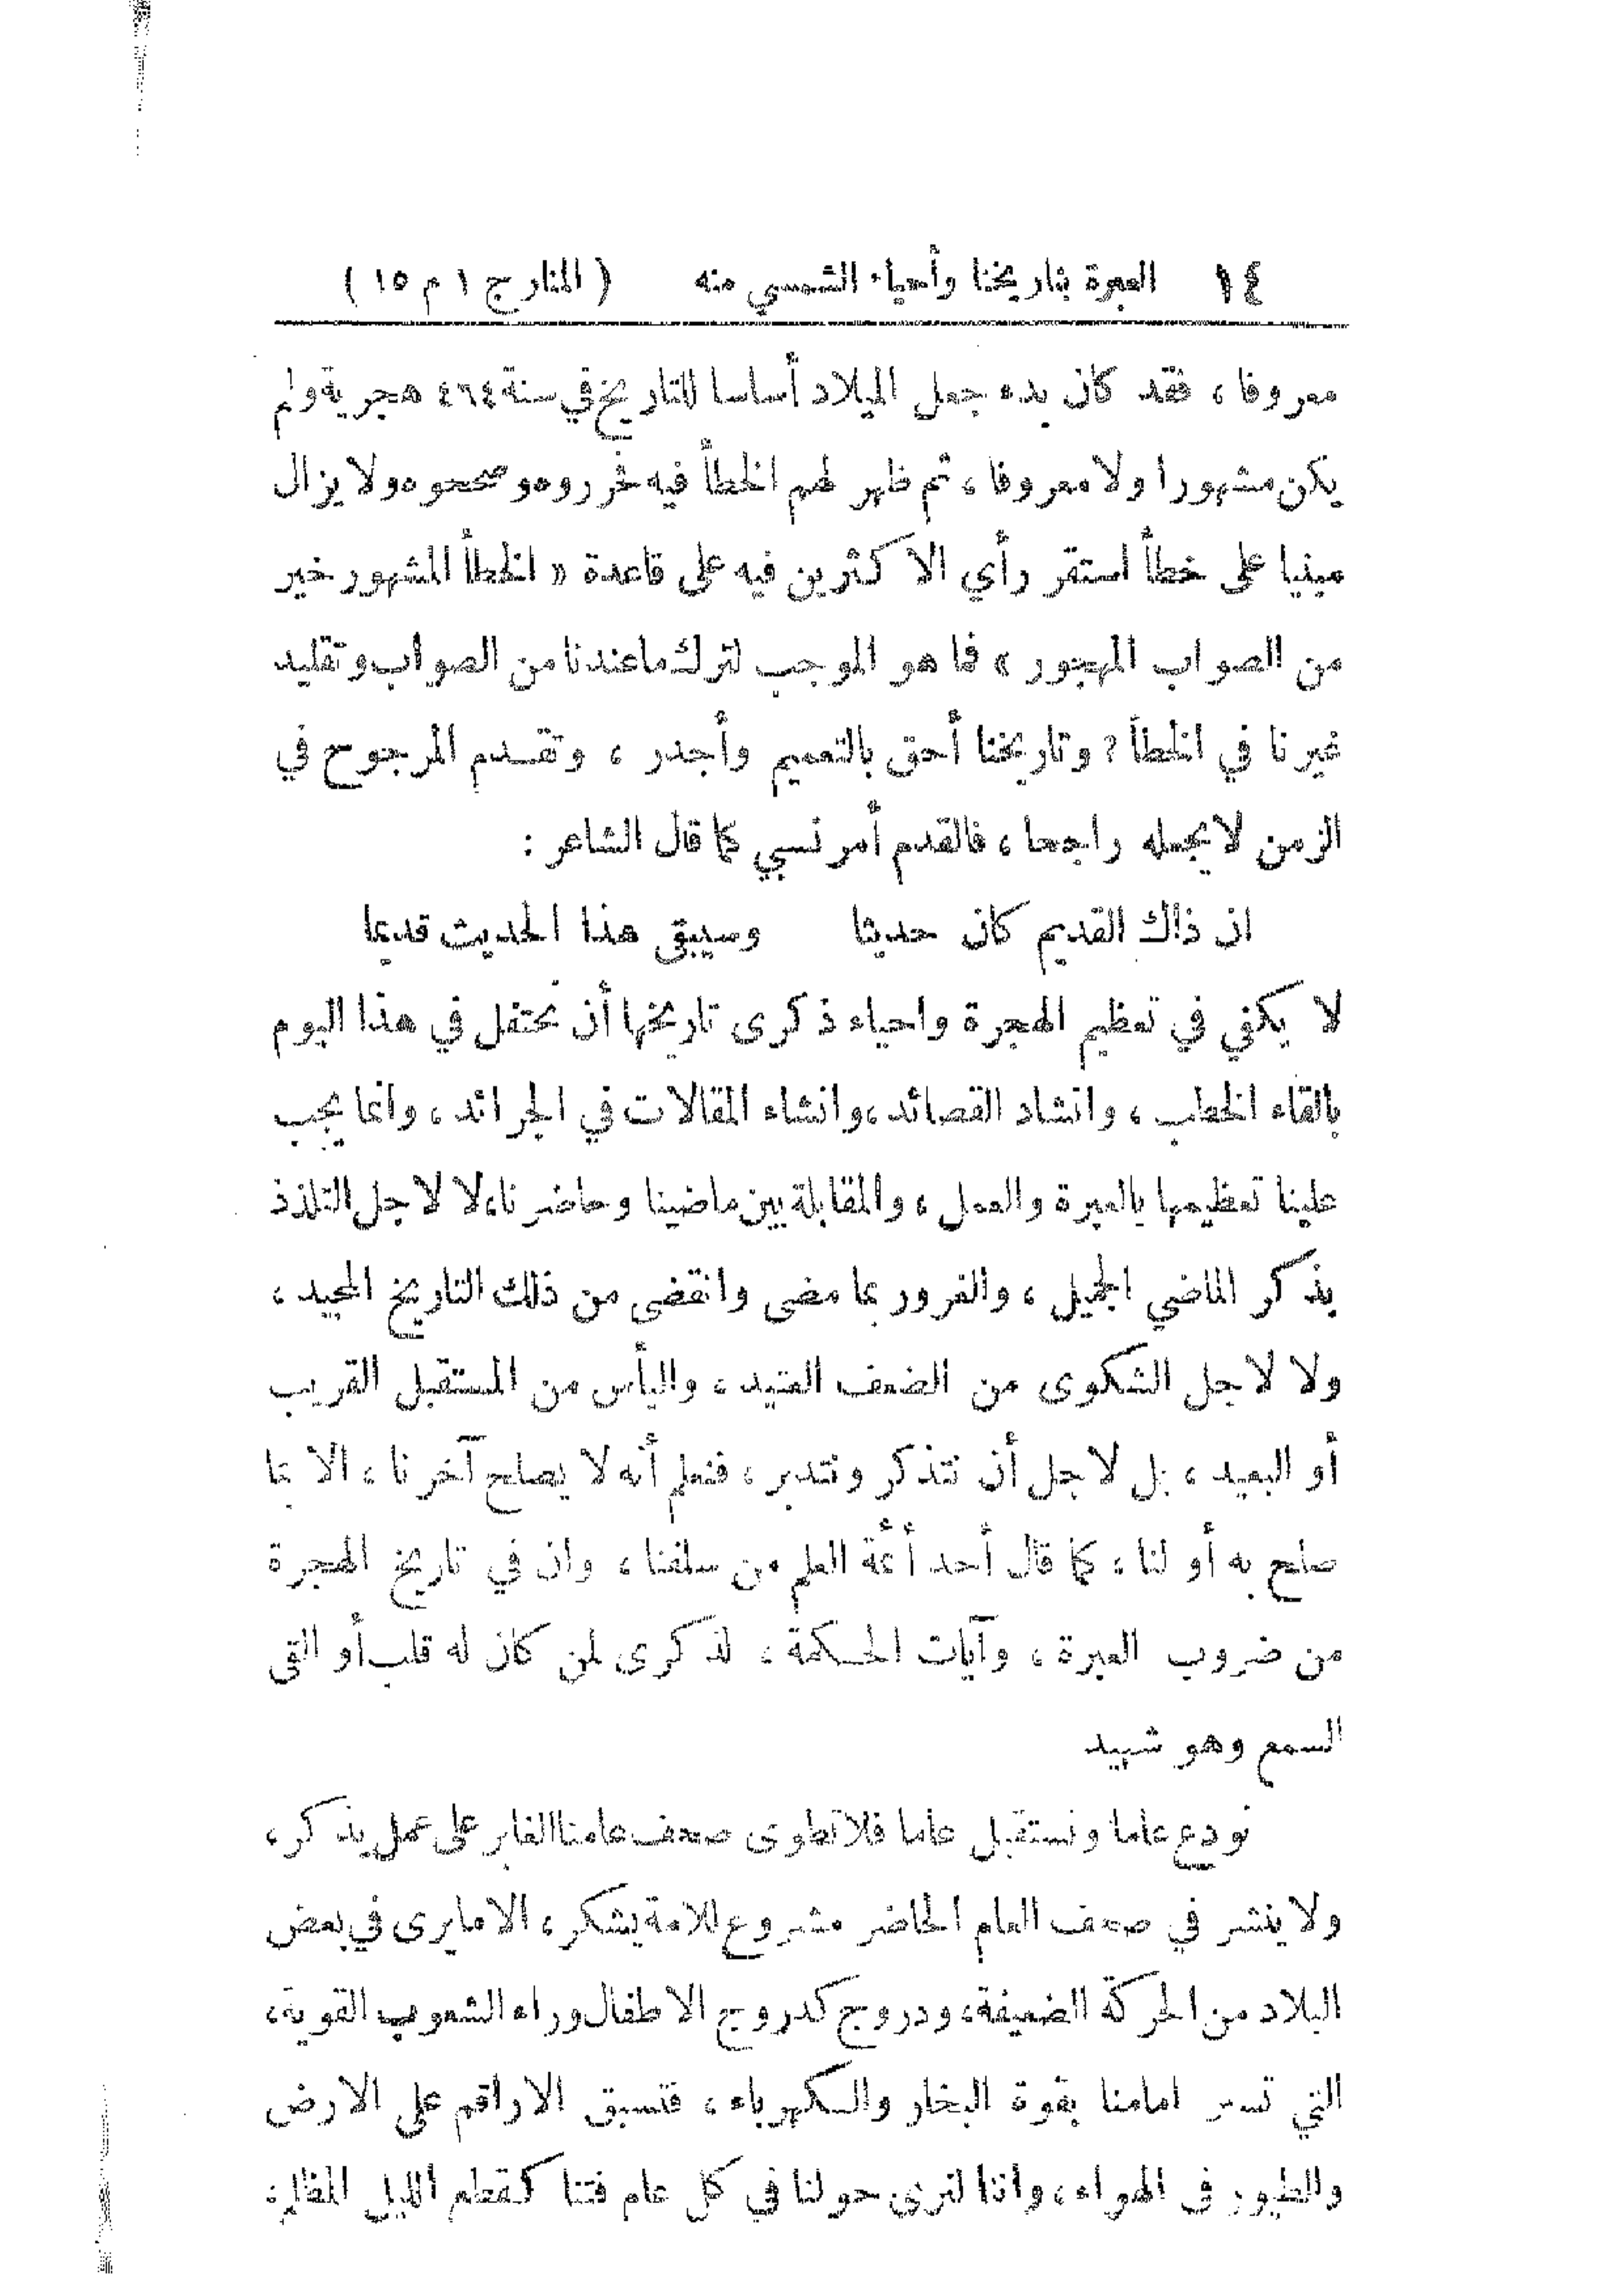 ١٤ العبرة بتاريخنا وأحياء الشمسي منه ( المنار ج ١ م ١٥ )
معروفا ، فقد كان بدء جعل الميلاد أساسا للتاريخ في سنة ٤٦٤ هجرية ولم
يكن مشهورا ولا معروفا ، ثم ظهر لهم الخطأ فيه فحرروه وصححوه ولا يزال
مبنيا على خطأ استقر رأي الاكثرين فيه على قاعدة « الخطأ المشهور خير
من الصواب المهجور » فما هو الموجب لترك ما عندنا من الصواب وتقليد
غيرنا في الخطأ ? وتاريخنا أحق بالتعميم وأجدر ، وتقدم المرجوح في
الزمن لا يجعله راجحا ، فالقدم أمر نسبي كما قال الشاعر :
ان ذاك القديم كان حديثا وسيبقى هذا الحديث قديما
لا يكفي في تعظيم الهجرة واحياء ذكرى تاريخها أن نحتفل في هذا اليوم
بالقاء الخطب ، وانشاد القصائد ، وانشاء المقالات في الجرائد ، وانما يجب
علينا تعظيمها بالعبرة والعمل ، والمقابلة بين ماضينا وحاضرنا ، لا لاجل التلذذ
بذكر الماضي الجميل ، والغرور بما مضى وانقضى من ذلك التاريخ المجيد ،
ولا لاجل الشكوى من الضعف العتيد ، واليأس من المستقبل القريب
أو البعيد ، بل لاجل أن نتذكر ونتدبر ، فنعلم أنه لا يصلح آخرنا ، الا بما
صلح به أولنا ، كما قال أحد أئمة العلم من سلفنا ، وان في تاريخ الهجرة
من ضروب العبرة ، وآيات الحكمة ، لذكرى لمن كان له قلب أو القى
السمع وهو شهيد
نودع عاما ونستقبل عاما فلا تطوى صحف عامنا الغابر على عمل يذكر ،
ولا ينشر في صحف العام الحاضر مشروع للامة يشكر ، الا ما يرى في بعض
البلاد من الحركة الضعيفة ، ودروج كدروج الاطفال وراء الشعوب القوية ،
التي تسير امامنا بقوة البخار والكهرباء ، فتسبق الاراقم على الارض
والطيور في الهواء ، واننا لنرى حولنا في كل عام فتنا كقطع الليل المظلم